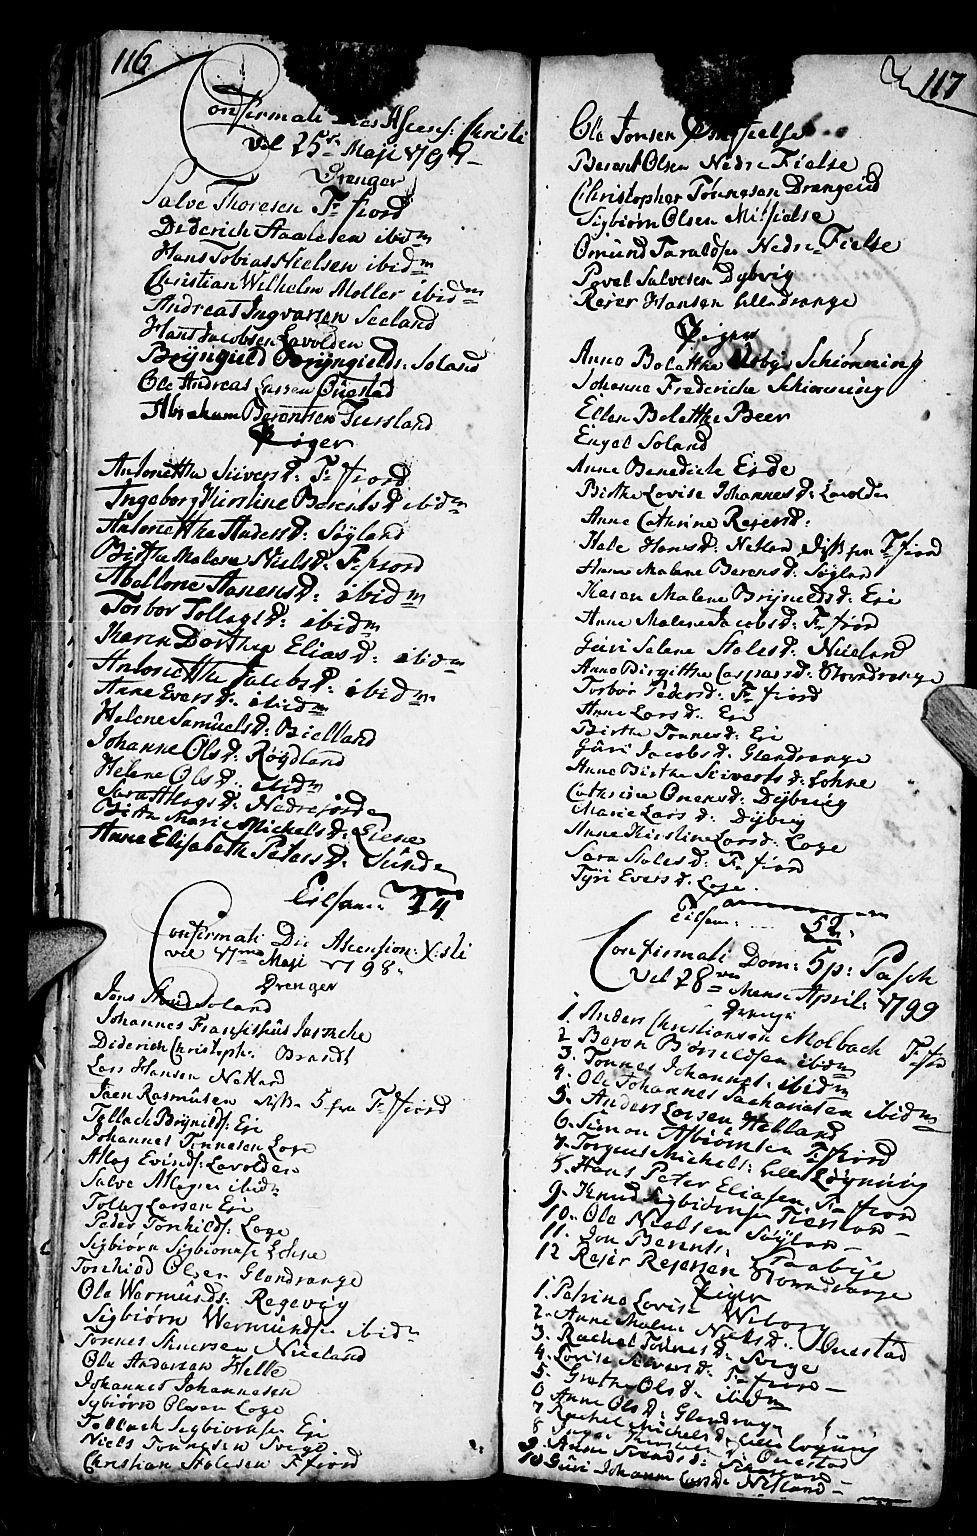 116
Confirmati Dies Ascens: Christi
vel 25de Maji 179
Drenger
Salve Thoresen F:fiord
Diderich Aanensen ibidm
Hans Tobias Nielsen ibidm
Christian Wilhelm Møller ibidm
Andreas Ingvarsen Seeland
Hans Jacobsen Lavolden
Brÿngield Brÿngields: Soland
Ole Andreas Lassen Ønestad
Abraham Berentsen Tiersland
Piger
Antonetha Siversd: F:fiord
Ingeborg Kirstine Berentsd ibidm
Antonettha Andersd: Søÿland
Birthe Malene Nielsd: F:fiord
Abellone Aanensd: ibidm
Torbor Tollagsd: ibidm
Karen Dorthea Eliasd: ibidm
Antonettha Jacobsd: ibidm
Anne Eversd: ibidm
Helene Samuelsd: Bielland
Johanne Olsd: Røÿdland
Helene Olsd: ibidm
Sara Atlagsd: Nedrefiorden
Birthe Marie Michelsd: Eiene
Anne Elisabeth Petersd: Sunde
Tilsam: 24
Confirmati Die Ascension: X:sti
vel 17me Maji 1798.
Drenger
Jens Soland
Johannes Fransiskus
Diderich Christoph: Brandt
Lars Hansen Netland
Jaen Rasmussen F:fiord
Tollach Brÿnilds: Eie
Johannes Tønnesen Loge
Atlag Evinds: Lavolden
Salve Atlagsen ibidm
Tollag Larsen Eie
Peder Torkilds: Loge
Sigbiørn Sigbiørnse Lohne
Torkield Olsen Glendrange
Ole Wermunds: Regevig
Sigbiørn Wermundse ibidm
Tønnes Nuland
Ole Andersen Helle
Johannes Johannesen
Sÿbiørn Olesen Loge
Tollach Sigbiørnse Eie
Niels Tønnesen Svege
Christian Stolesen F:fiord
117
Ole Jonsen
Berent Olsen Nedre Fielse
Christopher Tønnesen Drangeid
Sigbiørn Olsen Mifielse
Omund Taraldse Nedre Fielse
Povel Salvesen Dÿbvig
Reier Hansen Glendrange
Piger
Anne Bolettha Schiønning
Johanne Frederiche Schiønning
Ellen Bolettha Beer
Engel Soland
Anne Benedicte Eide
Birthe Lovise Johannesd: Lavolden
Anne Cathrine Reiersd:
Kale Hansd: Netland F:fiord
Hanne Malene Berensd: Søÿland
Karen Malene Brÿnildsd: Eie
Anne Malene Jacobsd: F:fiord
Guri Salene Stolesd: Nueland
Anne Birgitthe Caspersd: Stordrange
Torbor Pedersd: F:fiord
Anne Larsd: Eie
Birthe Tønnesd: Eie
Guri Jacobsd: Glendrange
Anne Birthe Sivertsd: Lohne
Cathrine Onensd: Dÿbvig
Marie Larsd: Dÿbvig
Anne Kirstine Larsd: Loge
Sara Stolesd: F:fiord
Tÿri Eversd: Loge
Tilsam: 52
Confirmati Dom: 5p: Pasch
vel 28de Mensis April: 1799
Drenge
1. Anders Christiansen Molbach F:fiord
2 Baron Børildsen ibidm
3. Tønnes Johannes: ibidm
4. Ole Johannes Sachariasen ibidm
5. Anders Larsen Helland
6. Simon Asbiørnsen F:fiord
7. Torgius Michels: Lille Løÿning
8. Hans Peter Eliasen F:fiord
9. Knud Sigbiørnse Tiersland
10. Ole Nielsen Søÿland
11. Jon Berents:
12 Reier Reiersen Stordrange
Piger
1. Petrine Lovise Wiborg
2. Anne Malene Nielsd: Ønestad
3. Rachel Tønnesd: Svege
4. Lovise Siversd: F:fiord
5. Grethe Olsd: ibidm
6 Anne Olsd: Glendrange
7 Rachel Michelsd: Lille Løÿning
8 Inger Ønestad
9. Anne
10 Guri Johanne Larsd: Netland